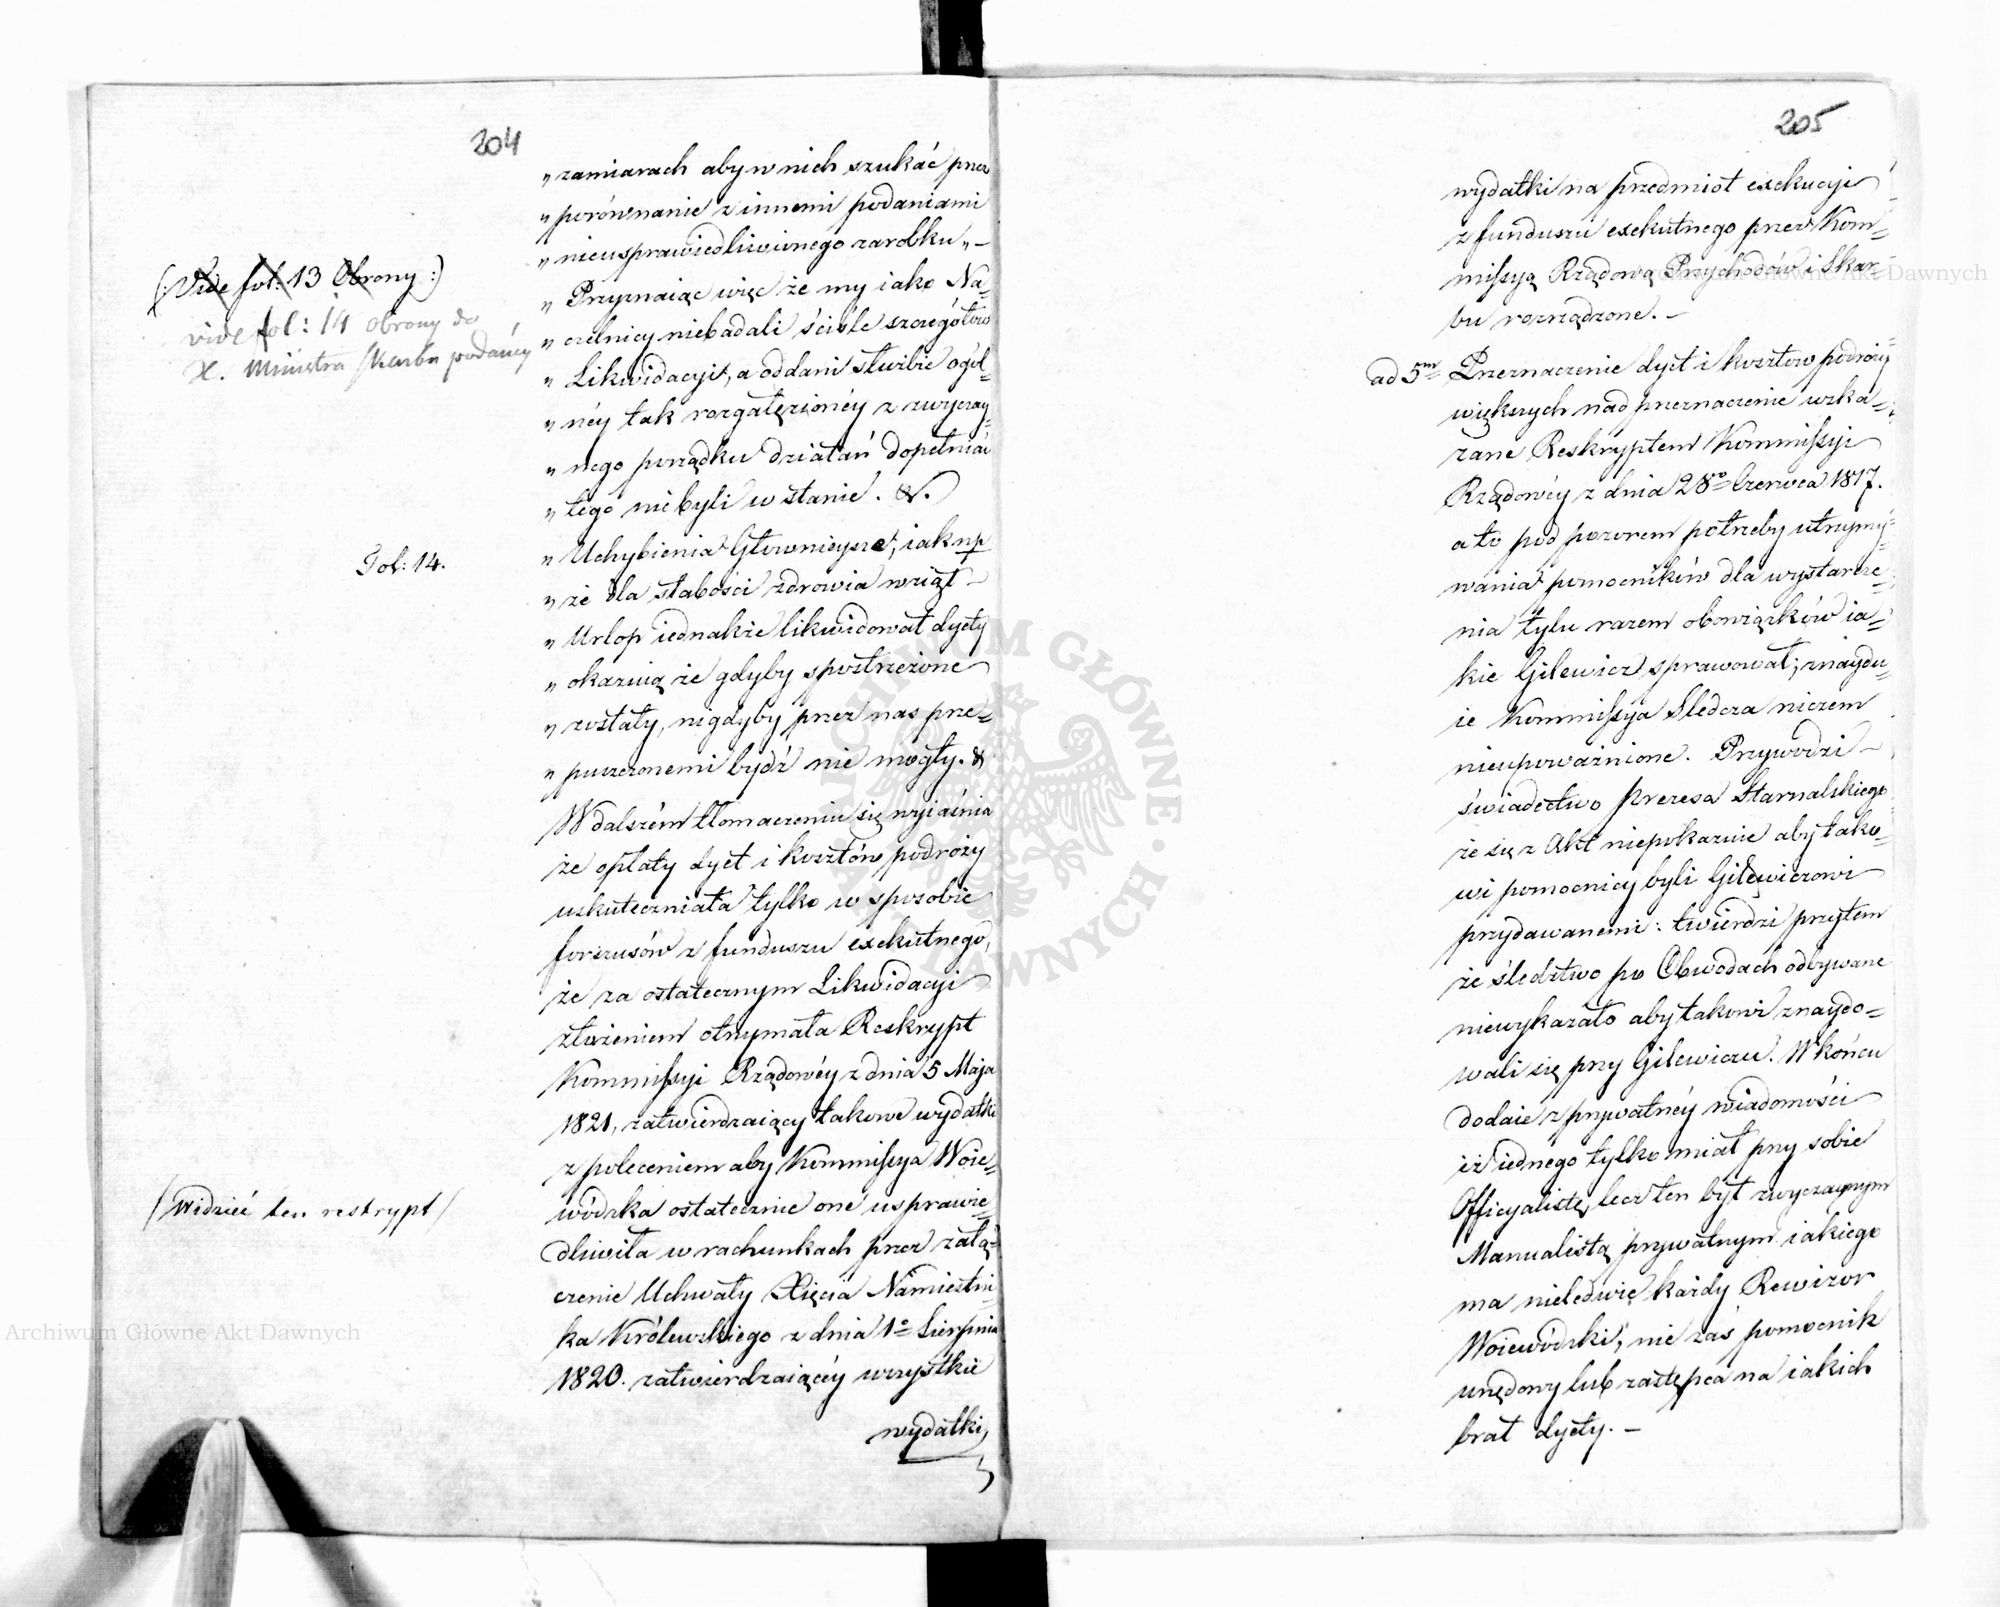 204
„ zamiarach aby w nich szukać przez
„ porównanie z innemi podaniami
„ nieusprawiedliwionego zarobku „ –
(: Vide fol: 13 Obrony :)
vide fol: 14 obrony do
X. Ministra Skarbu podanéy
„ Przyznaiąc więc że my iako Na=
„ czelnicy niebadali ściśle szczegółów
„ Likwidacyi, a oddani służbie ogól=
„ néy tak rozgałęzionéy z zwyczay=
„ nego porządku działań dopełniać
„ tego nie byli w stanie. &.
Fol: 14.
„ Uchybienia Głownieysze, iak np
„ że dla słabości zdrowia wziął –
„ Urlop iednakże likwidował dyety
„ okazuią że gdyby spostrzeżone
„ zostały, nigdyby przez nas prze=
„ puszczonemi bydź nie mogły. &
W dalszém tłomaczeniu się wyiaśnia
że opłaty dyet i kosztów podroży
uskuteczniała tylko w sposobie
forszusów z funduszu exekutnego,
że za ostatecznym Likwidacyi
złożeniem otrzymała Reskrypt
Kommissyi Rządowéy z dnia 5 Maja
1821, zatwierdzaiący takowe wydatki
z poleceniem aby Kommissya Woie=
wódzka ostatecznie one usprawie=
(Widzieć ten restrypt)
dliwiła w rachunkach przez załą=
czenie Uchwały Xięcia Namiestni=
ka Królewskiego z dnia 1º Sierpnia
1820. zatwierdzaiącéy wszystkie
wydatki
205
wydatki na przedmiot exekucyi
z funduszu exekutnego przez Kom=
missyą Rządową Przychodów i Skar=
bu rozrządzone. –
ad 5m Przeznaczenie dyet i kosztow podroży
większych nad przeznaczenie wska=
zane Reskryptem Kommissyi
Rządowéy z dnia 28º Czerwca 1817.
a to pod pozorem potrzeby utrzymy=
wania pomocników dla wystarcze=
nia tylu razem obowiązków ia=
kie Gilewicz sprawował; znaydu=
ie Kommissya Sledcza niczem
nieupoważnione. Przywodzi –
świadectwo Prezesa Starnalskiego
że się z Akt niepokazuie aby tako=
wi pomocnicy byli Gilewiczowi
przydawanemi: twierdzi przytem
że śledztwo po Obwodach odbywane
niewykazało aby takowi znaydo=
wali się przy Gilewiczu. W końcu
dodaie z prywatnéy wiadomości
iż iednego tylko miał przy sobie
Officyalistę, lecz ten był zwyczaynym
Manualistą prywatnym iakiego
ma nieledwie każdy Rewizor
Woiewódzki, nie zaś pomocnik
urzędowy lub zastępca na iakich
brał dyety. –
Archiwum Główne Akt Dawnych
Archiwum Główne Akt Dawnych
ARCHIWUM GŁÓWNE AKT DAWNYCH